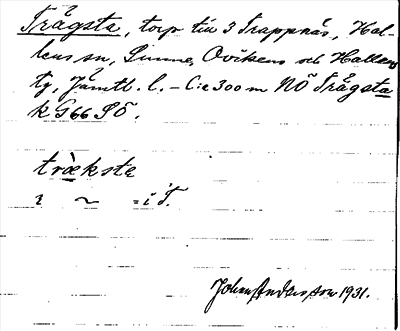 Trågsta, torp till 3 Trappnäs, Hal-
lens sn, Sunne, Ovikens och Hallens
tg, Jämtl. l. – C:a 300 m NÖ Trågsta
k G66 SÖ.
trækste
i ~ = i T.
John Andersson 1931.